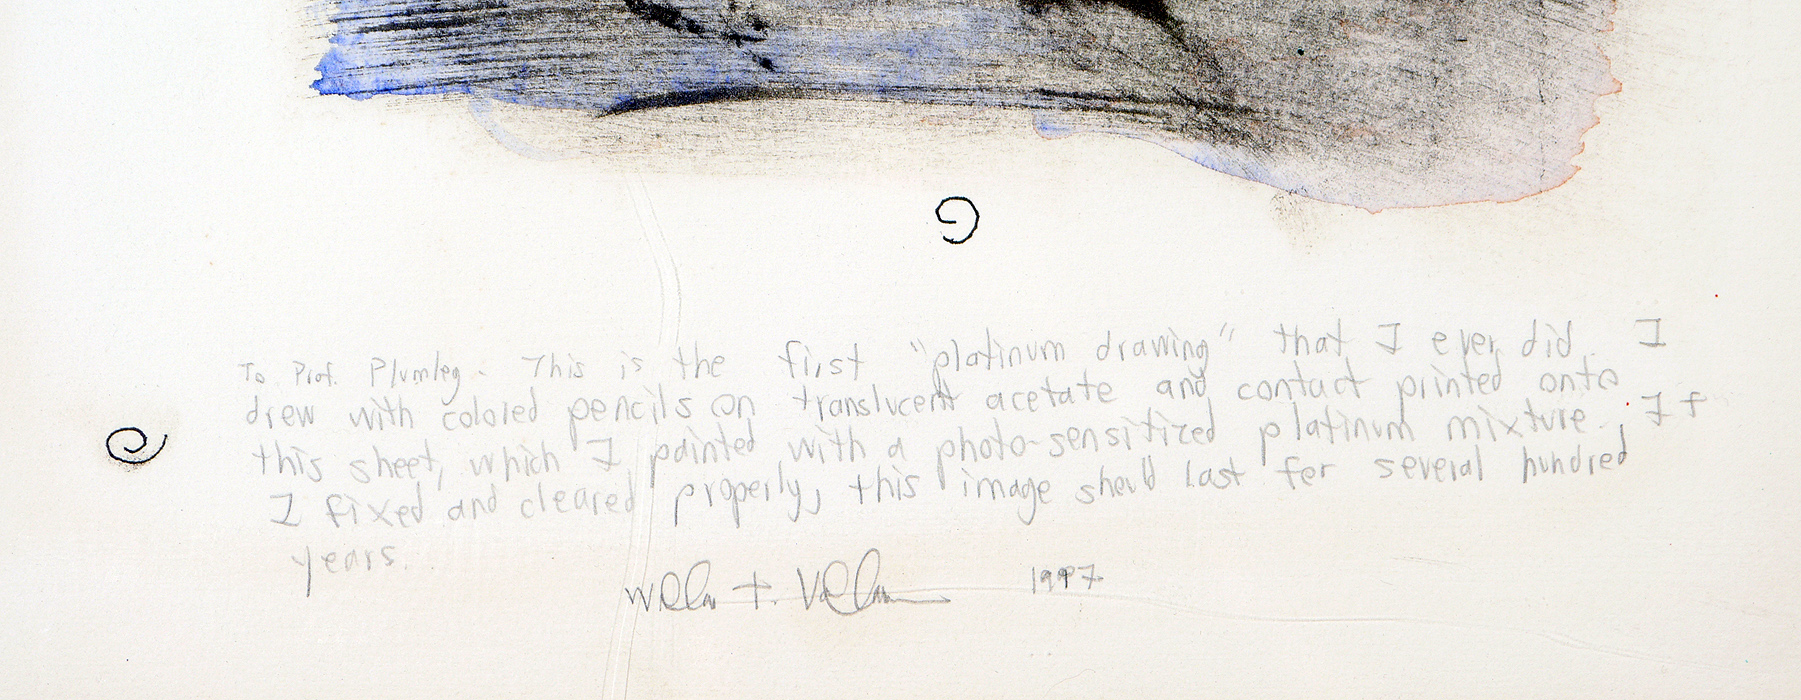 To Prof. Plumley - This is the first "platinum drawing" that I ever did. I
drew with colored pencils on translucent acetate and contact printed onto
this sheet, which I painted with a photo-sensitized platinum mixture. If
I fixed and cleared properly, this image should last for several hundred
years.
William T. Vollmann 1997